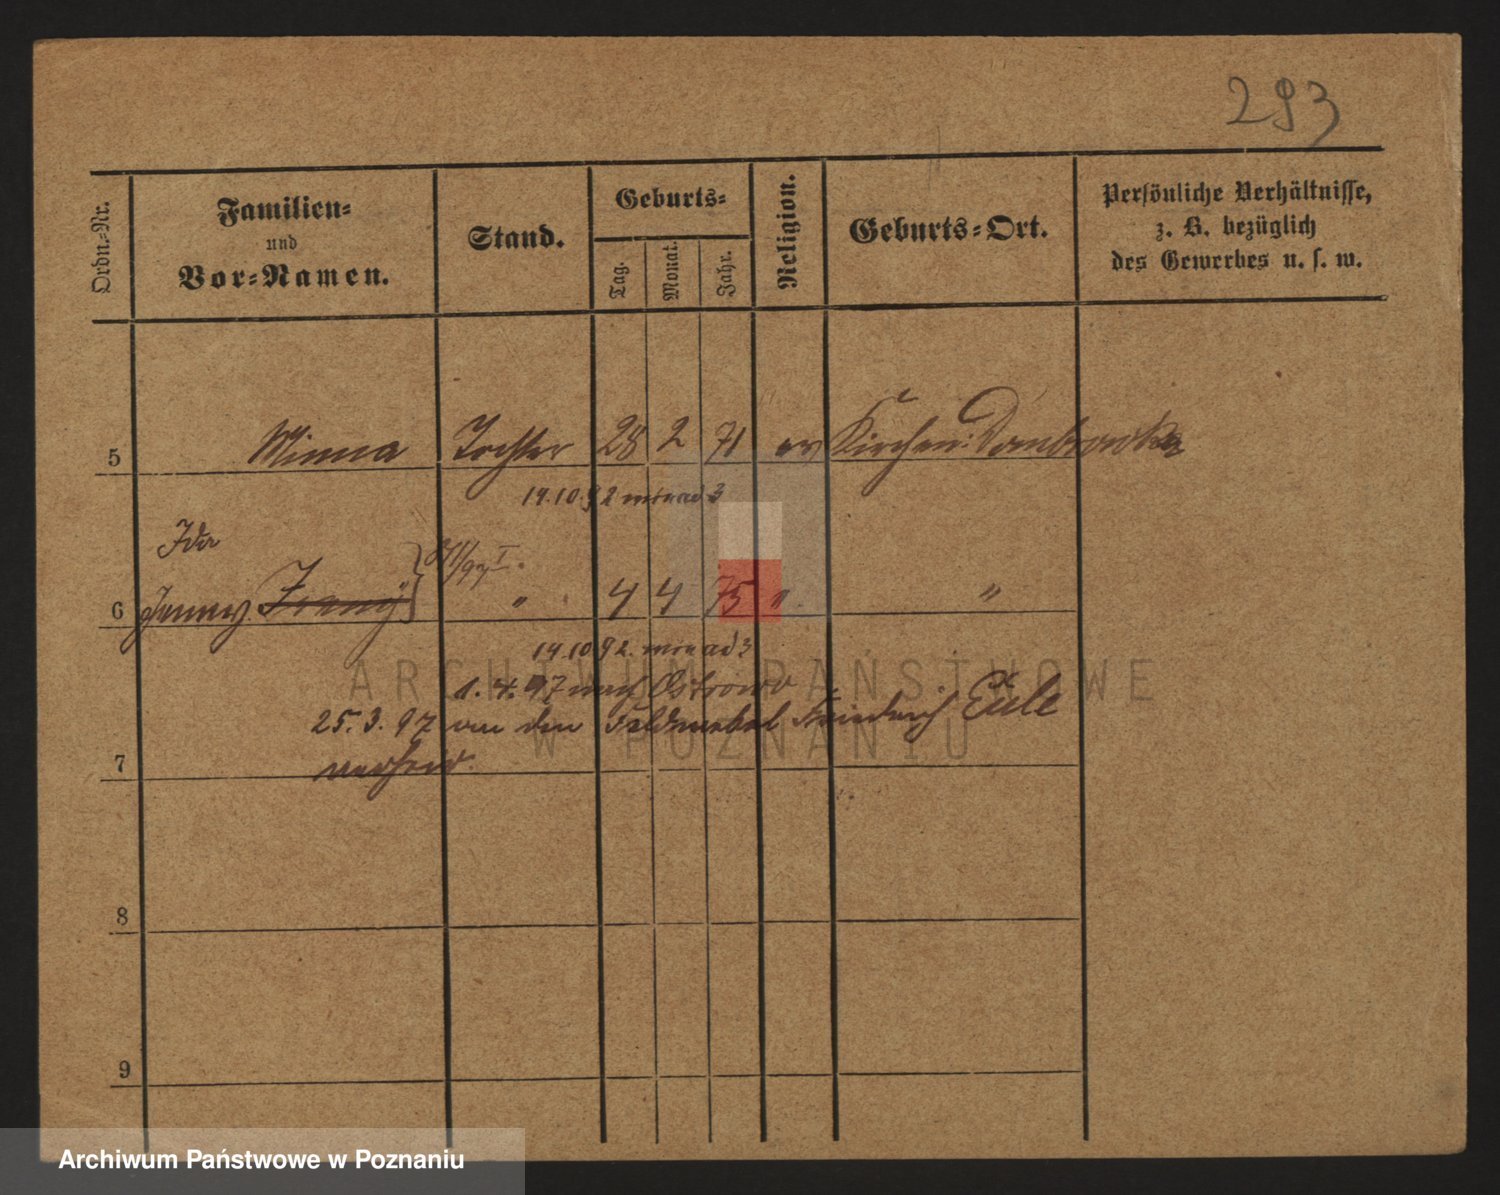 293
Ordn.-Nr.
Familien-
und
Vor-Namen.
Stand.
Geburts-
Tag.
Monat.
Jahr.
Religion.
Geburts-Ort.
Persönliche Verhältnisse,
z. B. bezüglich
des Gewerbes u. s. w.
5 Minna Tochter 28 2 71 ev Kirchen: Dombrowka
14.10.92
Ida
6 Jenny. " 4 4 75 " "
14.10.92.
1. 4. 97 nach Ostrowo
25. 3. 97 an den Feldwebel Friedrich Eule
7 verheir.
8
9
ARCHIWUM PAŃSTWOWE
W POZNANIU
Archiwum Państwowe w Poznaniu